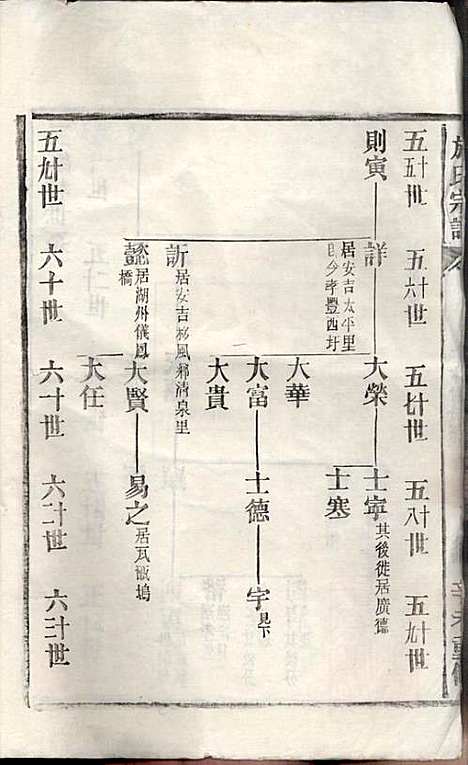 施氏宗譜
五十五世
五十六世
五十七世
五十八世
五十九世
則寅
詳
居安吉太平里
即今孝豐西圩
大榮
士寧
其後徙居廣德
士寒
大華
大富
士德
宇
見下
大貴
訢
居安吉移風鄉清泉里
懿
居湖州儀鳳橋
大賢
易之
居瓦窰塢
大任
五十九世
六十世
六十一世
六十二世
六十三世